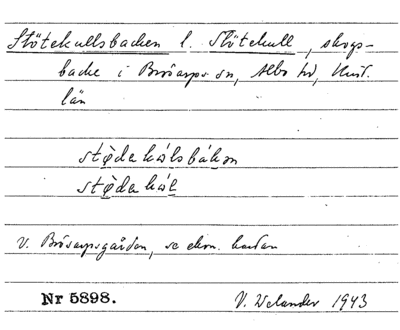 Stötekullsbacken l. Stötekull, skogs-
backe i Brösarps sn, Albo hd, Krist.
län
stødekulsbákan
stødekúl
V. Brösarpsgården, se ekon. kartan
Nr 5898. V. Welander 1943